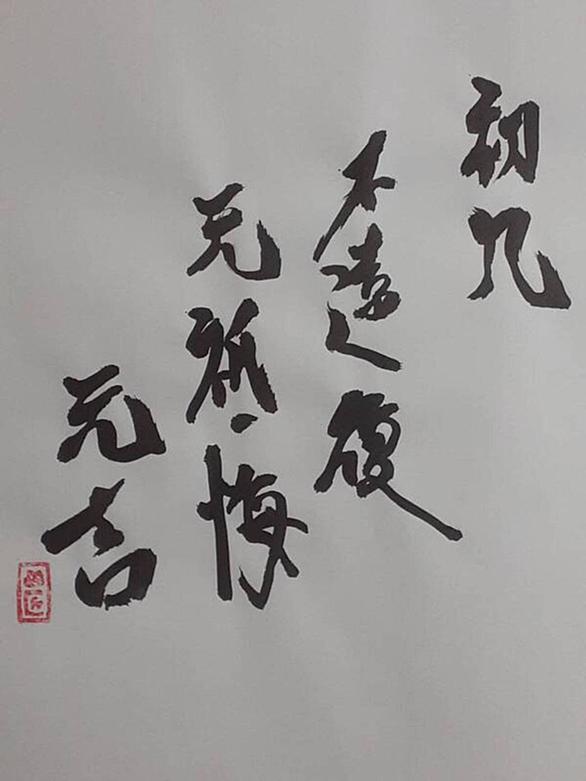 初九
不遠復
无祗悔
元吉